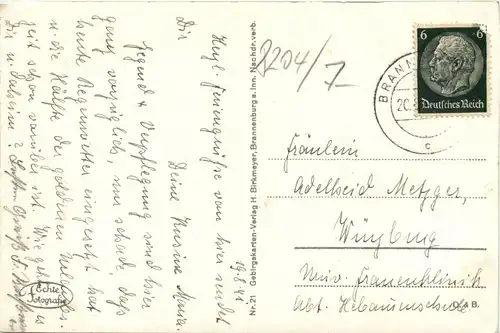 Herzl. Feriengrüße von hier sendet
Dir
Deine Kusine Maria.
19.8.41
Gegend & Verpflegung sind hier
ganz vorzüglich, nur schade, daß
heute Regenwetter eingesetzt hat
u. die Hälfte der goldenen
zeit schon vorüber ist. Wie geht es
Dir u. daheim?
Echte Fotografie
Nr. 21 Gebirgskarten-Verlag H. Birkmeyer, Brannenburg a. Inn. Nachdr. verb.
3204/7-
BRANN
20.
c
6 6
Deutsches Reich
Fräulein
Adelheid Metzger,
Würzburg
Univ. Frauenklinik
Abt. Hebammenschule